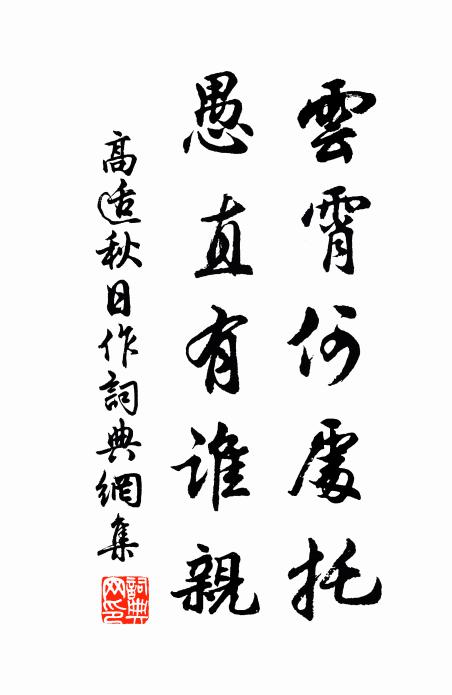 雲霄何處托
愚直有誰親
高適秋日作詞典網集
詞典網印